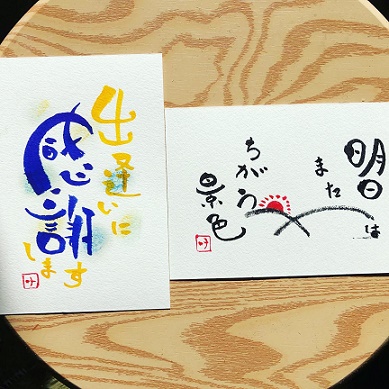 出逢いに
感謝
します
明日は
また
ちがう
景色